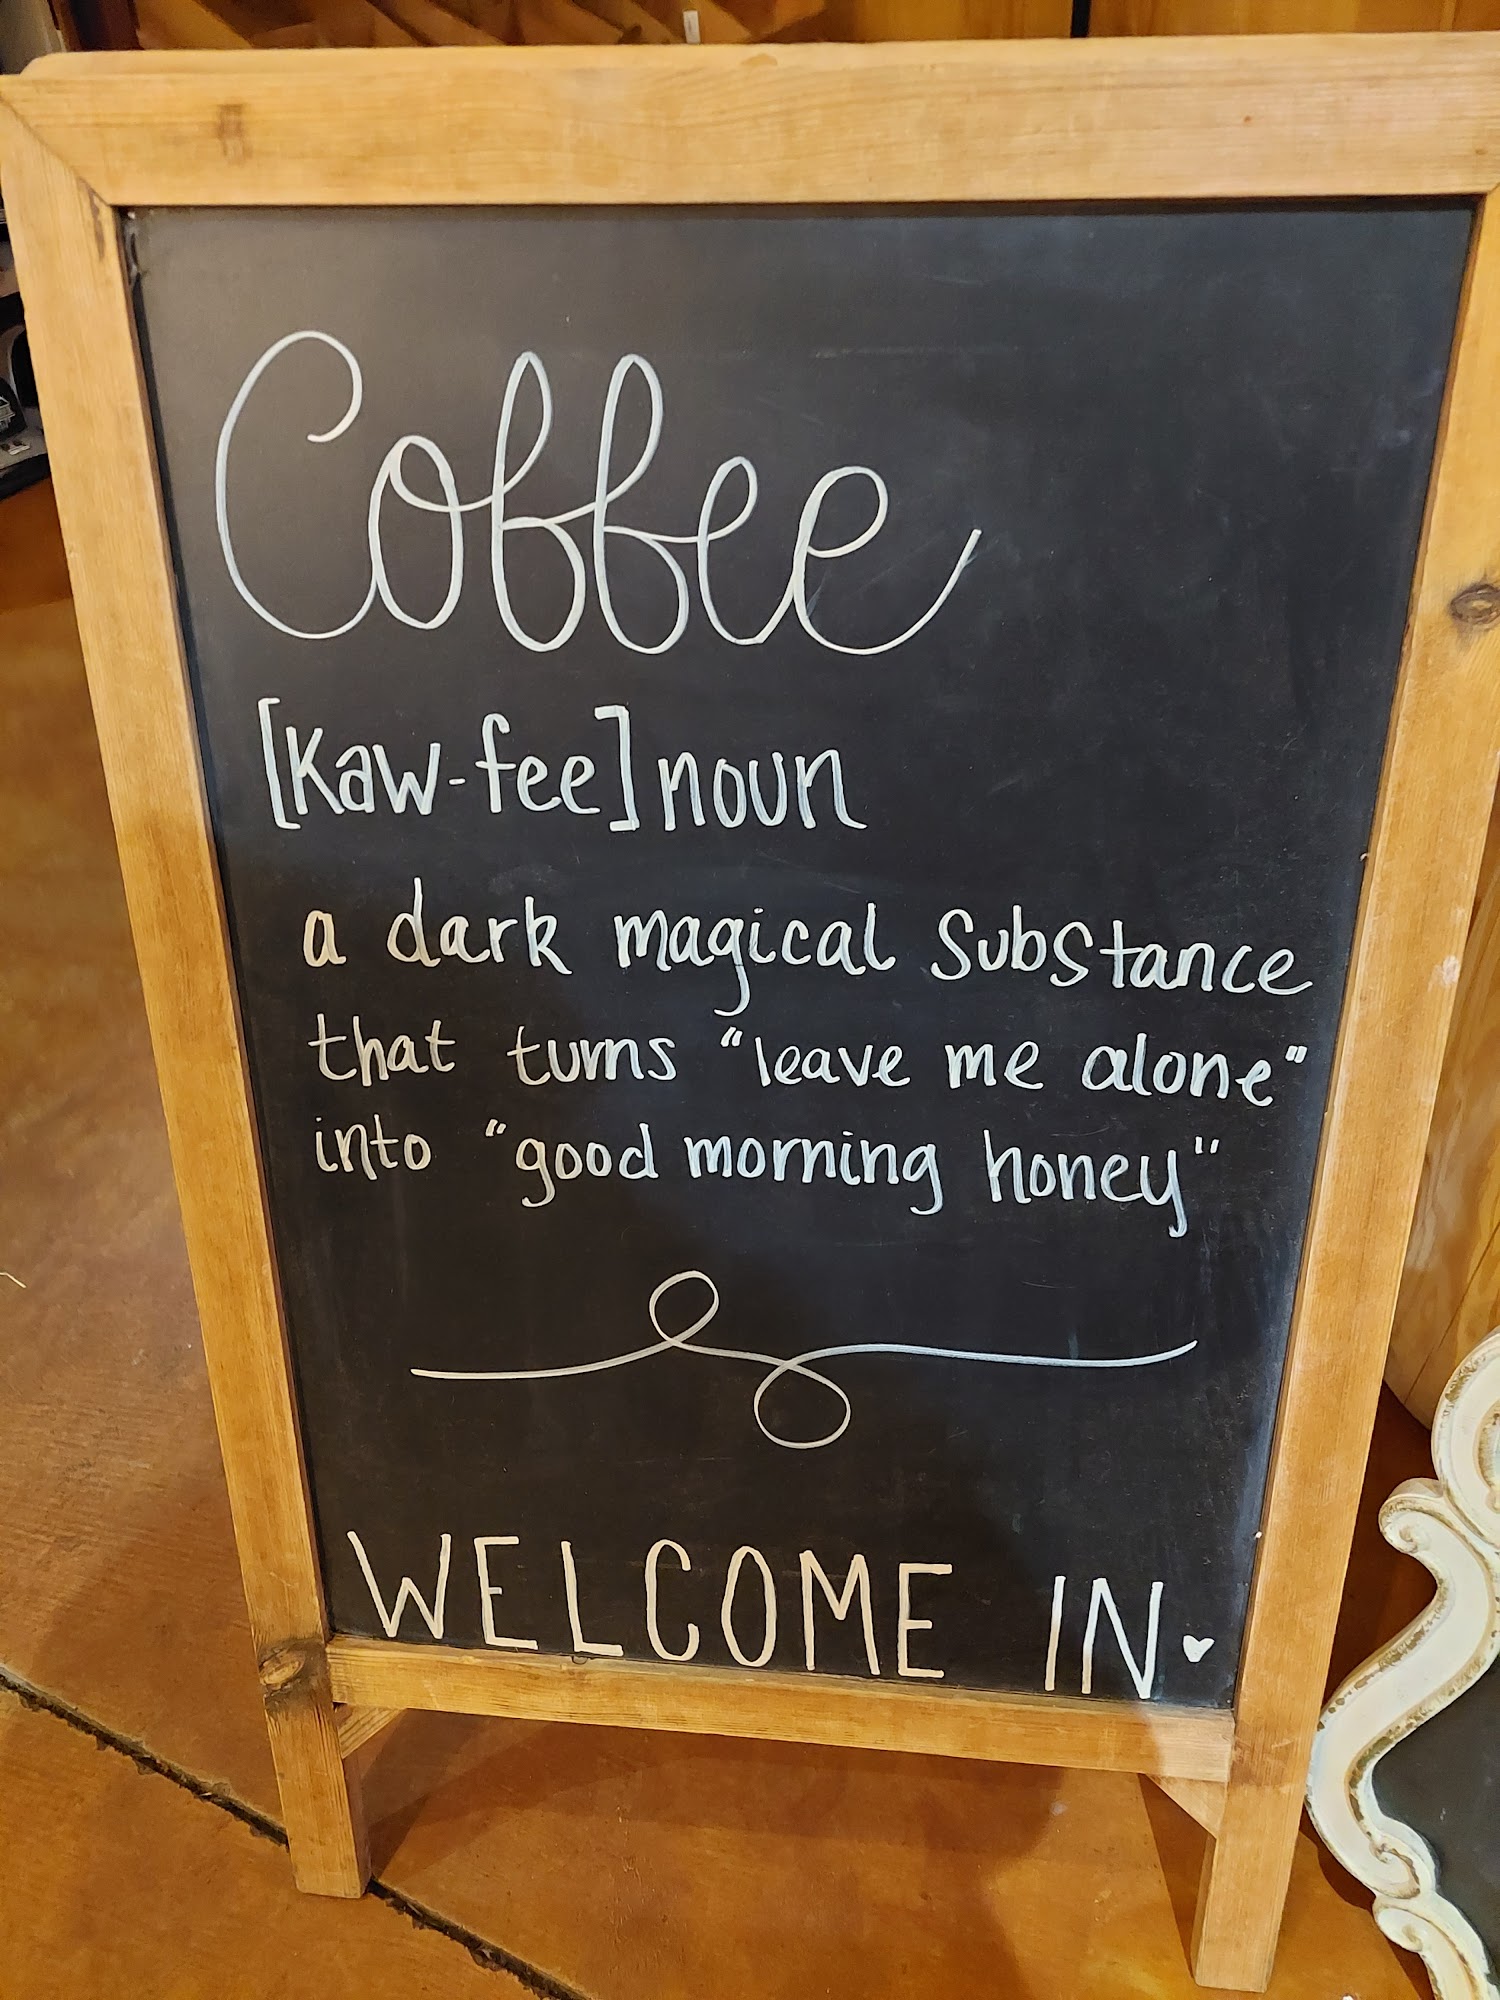 Coffee
[kaw-fee] noun
a dark magical substance
that turns "leave me alone"
into "good morning honey"
WELCOME IN